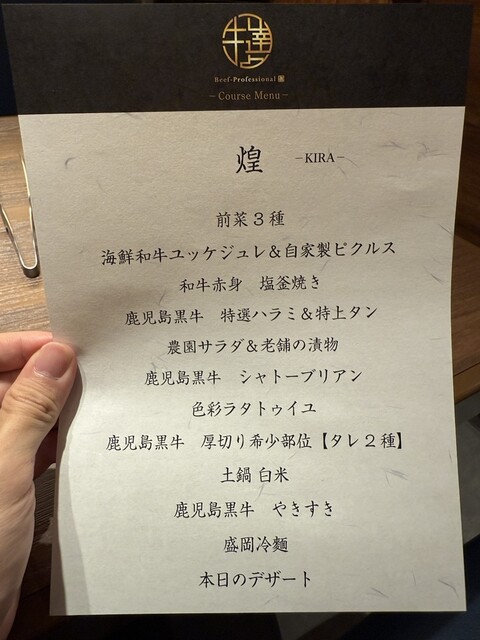 牛達人
Beef-Professional
－Course Menu－
煌 －KIRA－
前菜３種
海鮮和牛ユッケジュレ＆自家製ピクルス
和牛赤身　塩釜焼き
鹿児島黒牛　特選ハラミ＆特上タン
農園サラダ＆老舗の漬物
鹿児島黒牛　シャトーブリアン
色彩ラタトゥイユ
鹿児島黒牛　厚切り希少部位【タレ２種】
土鍋 白米
鹿児島黒牛　やきすき
盛岡冷麺
本日のデザート